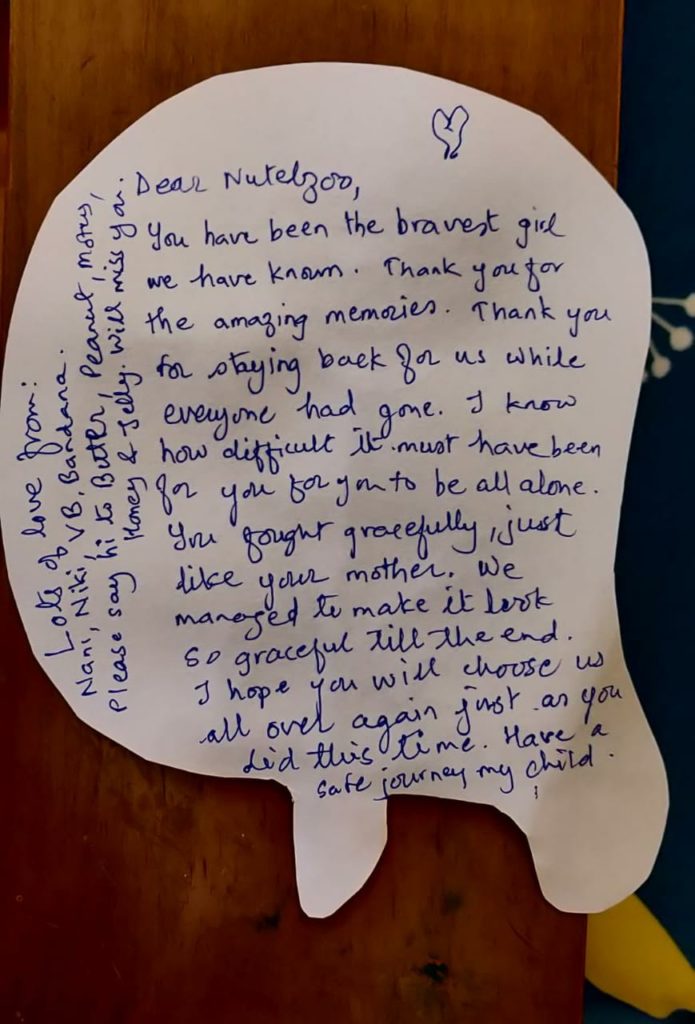 Dear Nutelzoo,
You have been the bravest girl
we have known. Thank you for
the amazing memories. Thank you
for staying back for us while
everyone had gone. I know
how difficult it must have been
for you for you to be all alone.
You fought gracefully, just
like your mother. We
managed to make it look
so graceful till the end.
I hope you will choose us
all over again just as you
did this time. Have a
safe journey my child.
Lots of love from:
Nani, Niki, VB, Bandana.
Please say hi to Butter, Peanut,
Honey & Jelly. Will miss you.